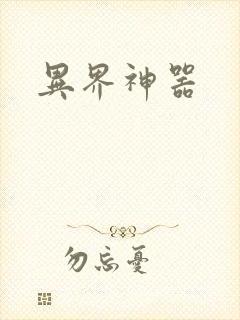 異界神器
勿忘憂